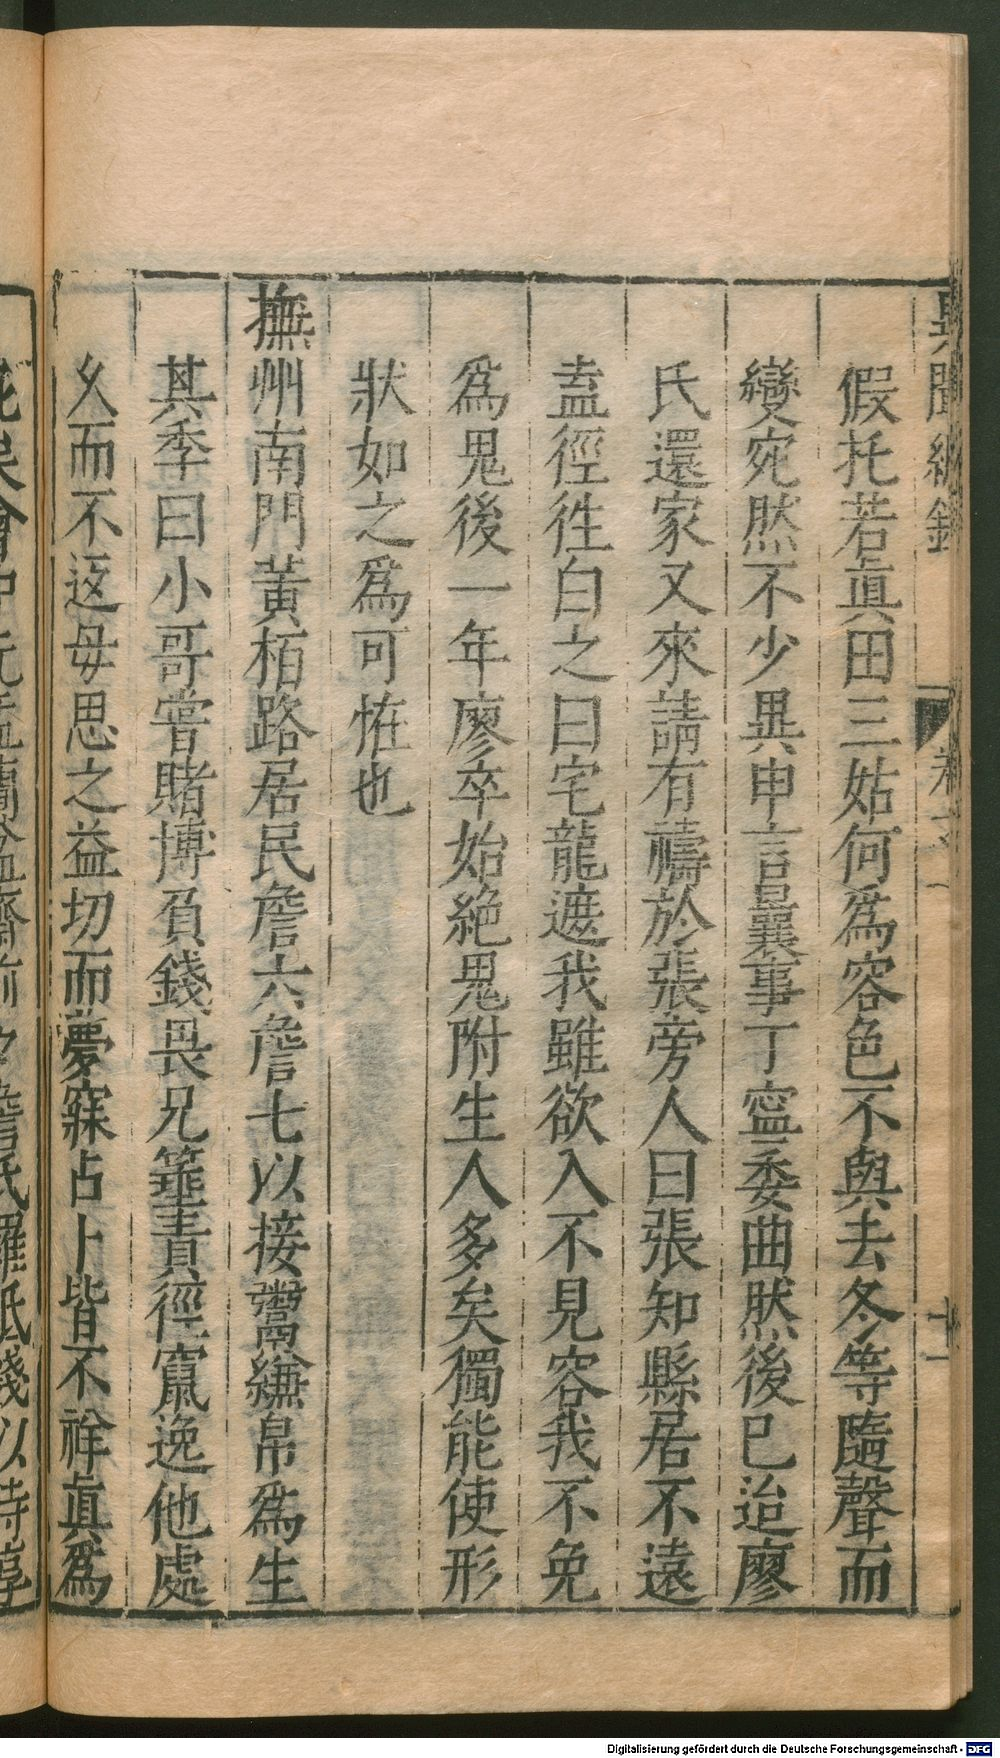 假托若眞田三姑何爲容色不與去冬等隨聲而
變宛然不少異申言曩事丁寧委曲然後已迨廖
氏還家又來請有禱於張旁人曰張知縣居不遠
盍徑徃白之曰宅龍遮我雖欲入不見容我不免
爲鬼後一年廖卒始絕鬼附生人多矣獨能使形
狀如之爲可恠也
撫州南門黃栢路居民詹六詹七以接鬻縑帛爲生
其季曰小哥嘗賭博負錢畏兄箠責徑竄逸他處
久而不返母思之益切而夢寐占卜皆不祥眞爲
Digitalisierung gefördert durch die Deutsche Forschungsgemeinschaft - DFG